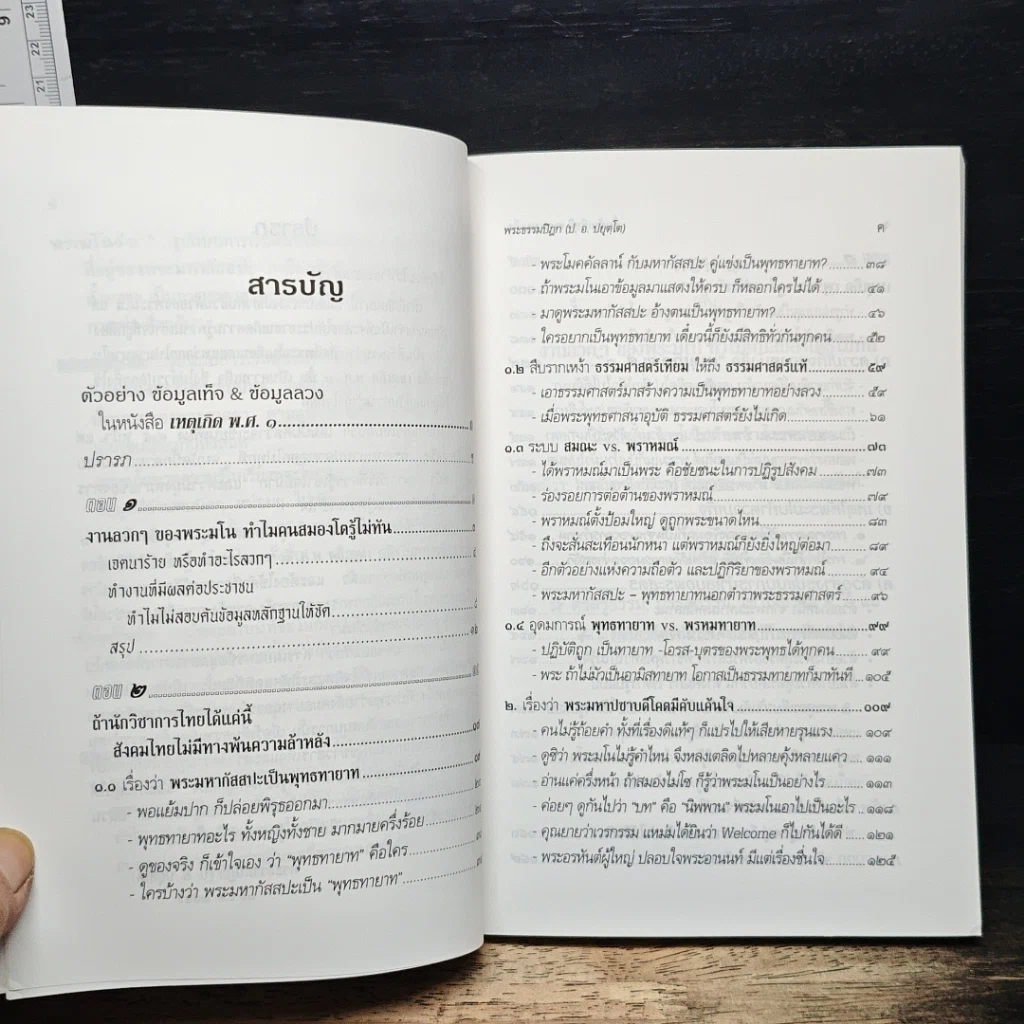 สารบัญ
ตัวอย่าง ข้อมูลเท็จ & ข้อมูลลวง
ในหนังสือ เหตุเกิด พ.ศ. ๑
ปรารภ
ตอน ๑
งานลวกๆ ของพระมโน ทำไมคนสมองโตรู้ไม่ทัน
เจตนาร้าย หรือทำอะไรลวกๆ
ทำงานที่มีผลต่อประชาชน
ทำไมไม่สอบค้นข้อมูลหลักฐานให้ชัด
สรุป
ตอน ๒
ถ้านักวิชาการไทยได้แค่นี้
สังคมไทยไม่มีทางพ้นความล้าหลัง
๑.๑ เรื่องว่า พระมหากัสสปะเป็นพุทธทายาท
- พอแย้มปาก ก็ปล่อยพิรุธออกมา
- พุทธทายาทอะไร ทั้งหญิงทั้งชาย มากมายครึ่งร้อย
- ดูของจริง ก็เข้าใจเอง ว่า "พุทธทายาท" คือใคร
- ใครบ้างว่า พระมหากัสสปะเป็น "พุทธทายาท"
พระธรรมปิฎก (ป. อ. ปยุตฺโต) ค
- พระโมคคัลลาน์ กับมหากัสสปะ คู่แข่งเป็นพุทธทายาท? ๓๘
- ถ้าพระมโนเอาข้อมูลมาแสดงให้ครบ ก็หลอกใครไม่ได้ ๔๑
- มาดูพระมหากัสสปะ อ้างตนเป็นพุทธทายาท? ๔๖
- ใครอยากเป็นพุทธทายาท เดี๋ยวนี้ก็ยังมีสิทธิทั่วกันทุกคน ๕๒
๑.๒ สืบรากเหง้า ธรรมศาสตร์เทียม ให้ถึง ธรรมศาสตร์แท้ ๕๙
- เอาธรรมศาสตร์มาสร้างความเป็นพุทธทายาทอย่างลวง ๕๙
- เมื่อพระพุทธศาสนาอุบัติ ธรรมศาสตร์ยังไม่เกิด ๖๑
๑.๓ ระบบ สมณะ vs. พราหมณ์ ๗๓
- ได้พราหมณ์มาเป็นพระ คือชัยชนะในการปฏิรูปสังคม ๗๓
- ร่องรอยการต่อต้านของพราหมณ์ ๗๙
- พราหมณ์ตั้งป้อมใหญ่ ดูถูกพระขนาดไหน ๘๓
- ถึงจะสั่นสะเทือนนักหนา แต่พราหมณ์ก็ยังยิ่งใหญ่ต่อมา ๘๙
- อีกตัวอย่างแห่งความถือตัว และปฏิกิริยาของพราหมณ์ ๙๔
- พระมหากัสสปะ – พุทธทายาทนอกตำราพระธรรมศาสตร์ ๙๖
๑.๔ อุดมการณ์ พุทธทายาท vs. พรหมทายาท ๙๙
- ปฏิบัติถูก เป็นทายาท -โอรส-บุตรของพระพุทธได้ทุกคน ๙๙
- พระ ถ้าไม่มัวเป็นอามิสทายาท โอกาสเป็นธรรมทายาทก็มาทันที ๑๐๕
๒. เรื่องว่า พระมหาปชาบดีโคตมีคับแค้นใจ ๑๐๙
- คนไม่รู้ถ้อยคำ ทั้งที่เรื่องดีแท้ๆ ก็แปรไปให้เสียหายรุนแรง ๑๐๙
- ดูซิว่า พระมโนไม่รู้คำไหน จึงหลงเตลิดไปหลายคุ้งหลายแคว ๑๑๑
- อ่านแค่ครึ่งหน้า ถ้าสมองไม่โซ ก็รู้ว่าพระมโนเป็นอย่างไร ๑๑๓
- ค่อยๆ ดูกันไปว่า "บท" คือ "นิพพาน" พระมโนเอาไปเป็นอะไร ๑๑๘
- คุณยายว่าเวรกรรม แหม่มได้ยินว่า Welcome ก็ไปกันได้ดี ๑๒๑
- พระอรหันต์ผู้ใหญ่ ปลอบใจพระอานนท์ มีแต่เรื่องชื่นใจ ๑๒๕